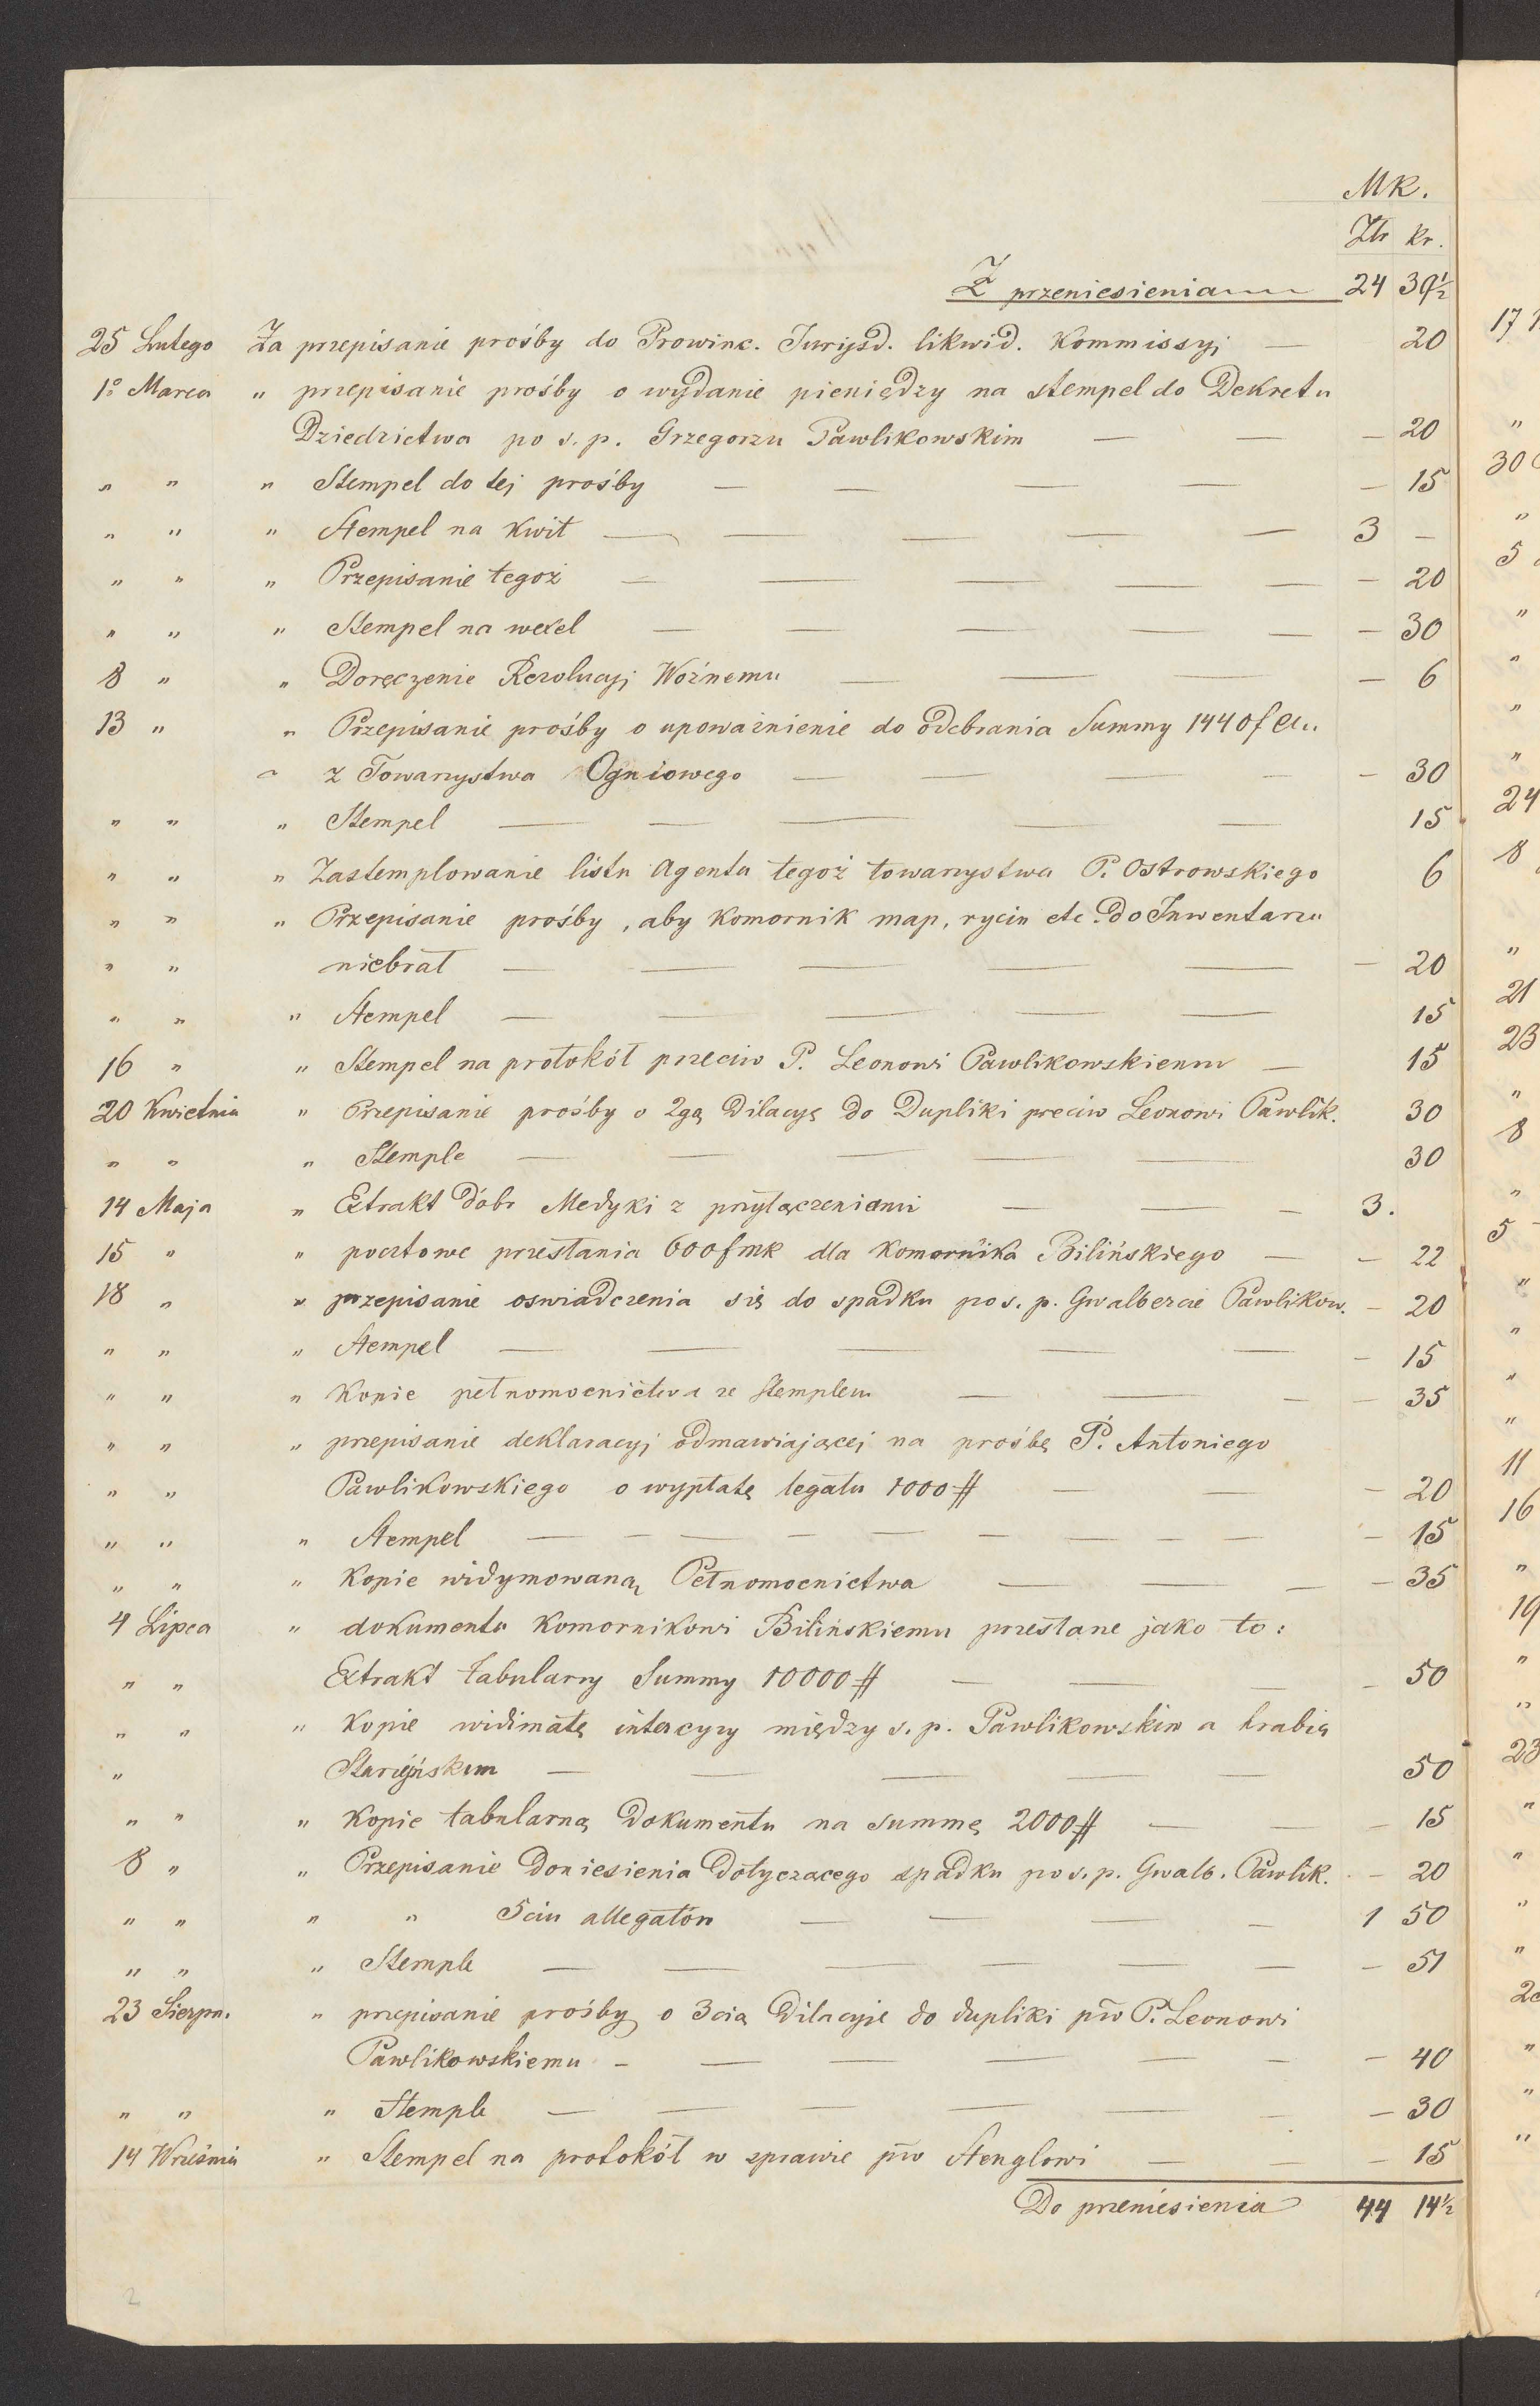 MK.
Złr kr.
Z przeniesienia 24 39½
25 Lutego Za przepisanie prośby do Prowinc. Juryzd. likwid. Kommissyi — 20
1º Marca " przepisanie prośby o wydanie pieniędzy na stempel do Dekretu
Dziedzictwa po s. p. Grzegorzu Pawlikowskim — — — 20
" " " Stempel do tej prośby — — — — — 15
" " " Stempel na kwit — — — — — 3 —
" " " Przepisanie tegoż — — — — — 20
" " " Stempel na wexel — — — — — — 30
8 " " Doręczenie Rezolucyi Woźnemu — — — — — 6
13 " " Przepisanie prośby o upoważnienie do odebrania Summy 1440 f
" z Towarzystwa Ogniowego — — — — — 30
" " " Stempel — — — — — 15
" " " Zastemplowanie listu Agenta tegoż towarzystwa P. Ostrowskiego 6
" " " Przepisanie prośby, aby Komornik map, rycin etc. do Inwentarzu
" " niebrał — — — — — — 20
" " " Stempel — — — — — 15
16 " " Stempel na protokół przeciw P. Leonowi Pawlikowskiemu — 15
20 Kwietnia " Przepisanie prośby o 2gą Dilacyę do Dupliki preciw Leonowi Pawlik. 30
" " " Stemple — — — — — 30
14 Maja " Extrakt Dóbr Medyki z przyłączeniami — — — 3.
15 " " pocztowe przesłania 600 f mk dla Komornika Bilińskiego — — 22
18 " " przepisanie oswiadczenia się do spadku po s. p. Gwalbercie Pawlikow. — 20
" " " Stempel — — — — — — 15
" " " Kopie pełnomocnictwa ze stemplem — — — — 35
" " " przepisanie deklaracyi odmawiającej na prośbę P. Antoniego
" " Pawlikowskiego o wypłatę legatu 1000 # — — — 20
" " " Stempel — — — — — — — — — — 15
" " " Kopie widymowaną Pełnomocnictwa — — — — 35
4 Lipca " dokumenta Komornikowi Bilińskiemu przesłane jako to:
" " Extrakt tabularny Summy 10000 # — — — — 50
" " " Kopie widimatę intercyzy między s. p. Pawlikowskim a hrabią
" Starzeńskim — — — — — 50
" " " Kopie tabularną Dokumentu na summę 2000 # — — — 15
8 " " Przepisanie Doniesienia Dotyczacego spadku po s. p. Gwalb. Pawlik. — 20
" " " " 5ciu allegatów — — — — 1 50
" " " Stemple — — — — — — 51
23 Sierpn. " przepisanie prośby o 3cią Dilacyie do dupliki pw P. Leonowi
Pawlikowskiemu — — — — — — — 40
" " " Stemple — — — — — — — 30
14 Września " Stempel na protokół w sprawie pw Stenglowi — — — 15
Do przeniesienia 44 14½
2
17
"
30
"
5
"
"
"
"
24
8
"
21
23
"
8
"
5
"
"
"
"
11
16
"
19
"
"
23
"
"
"
"
"
"
"